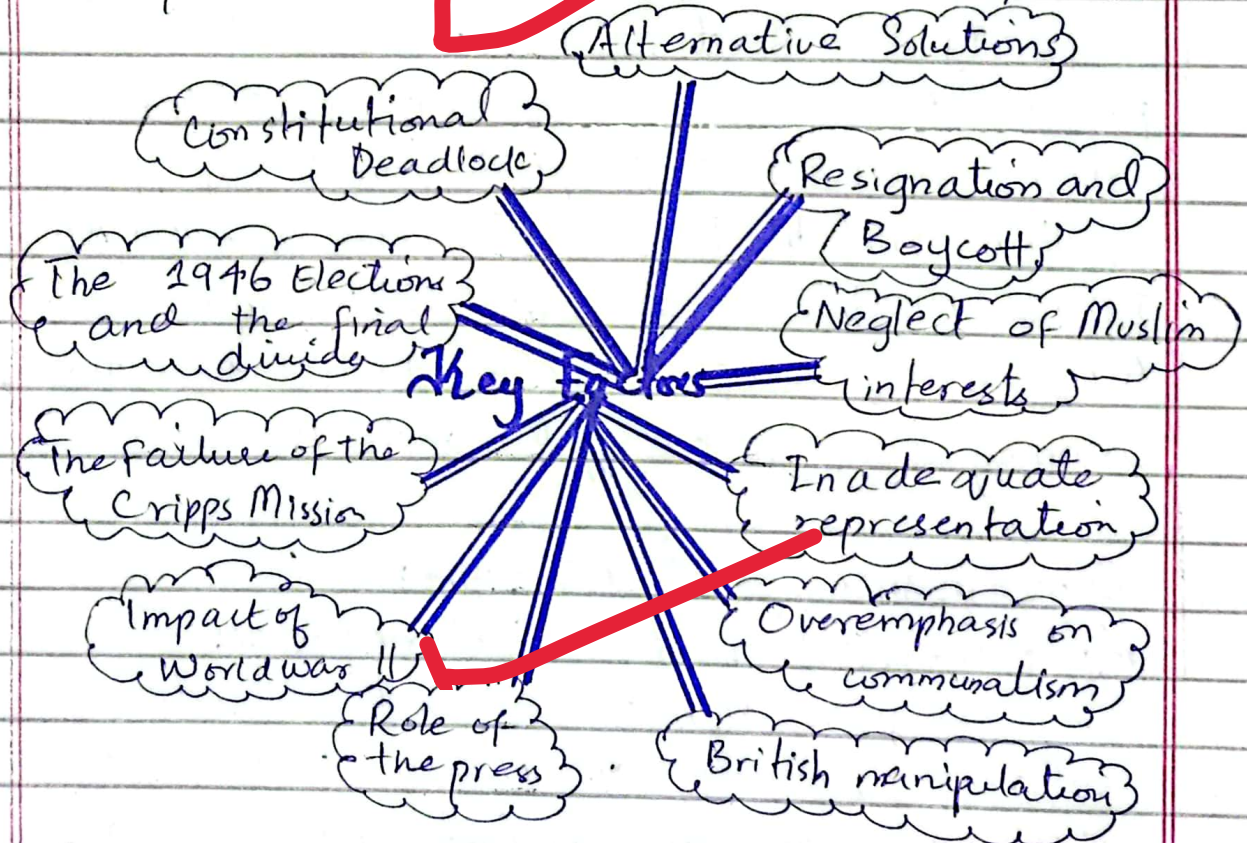 Alternative Solutions
Constitutional
Deadlock
Resignation and
Boycott
The 1946 Elections
and the final
divide
Neglect of Muslim
interests
Key Factors
The failure of the
Cripps Mission
Inadequate
representation
Impact of
World war II
Overemphasis on
communalism
Role of
the press
British manipulation